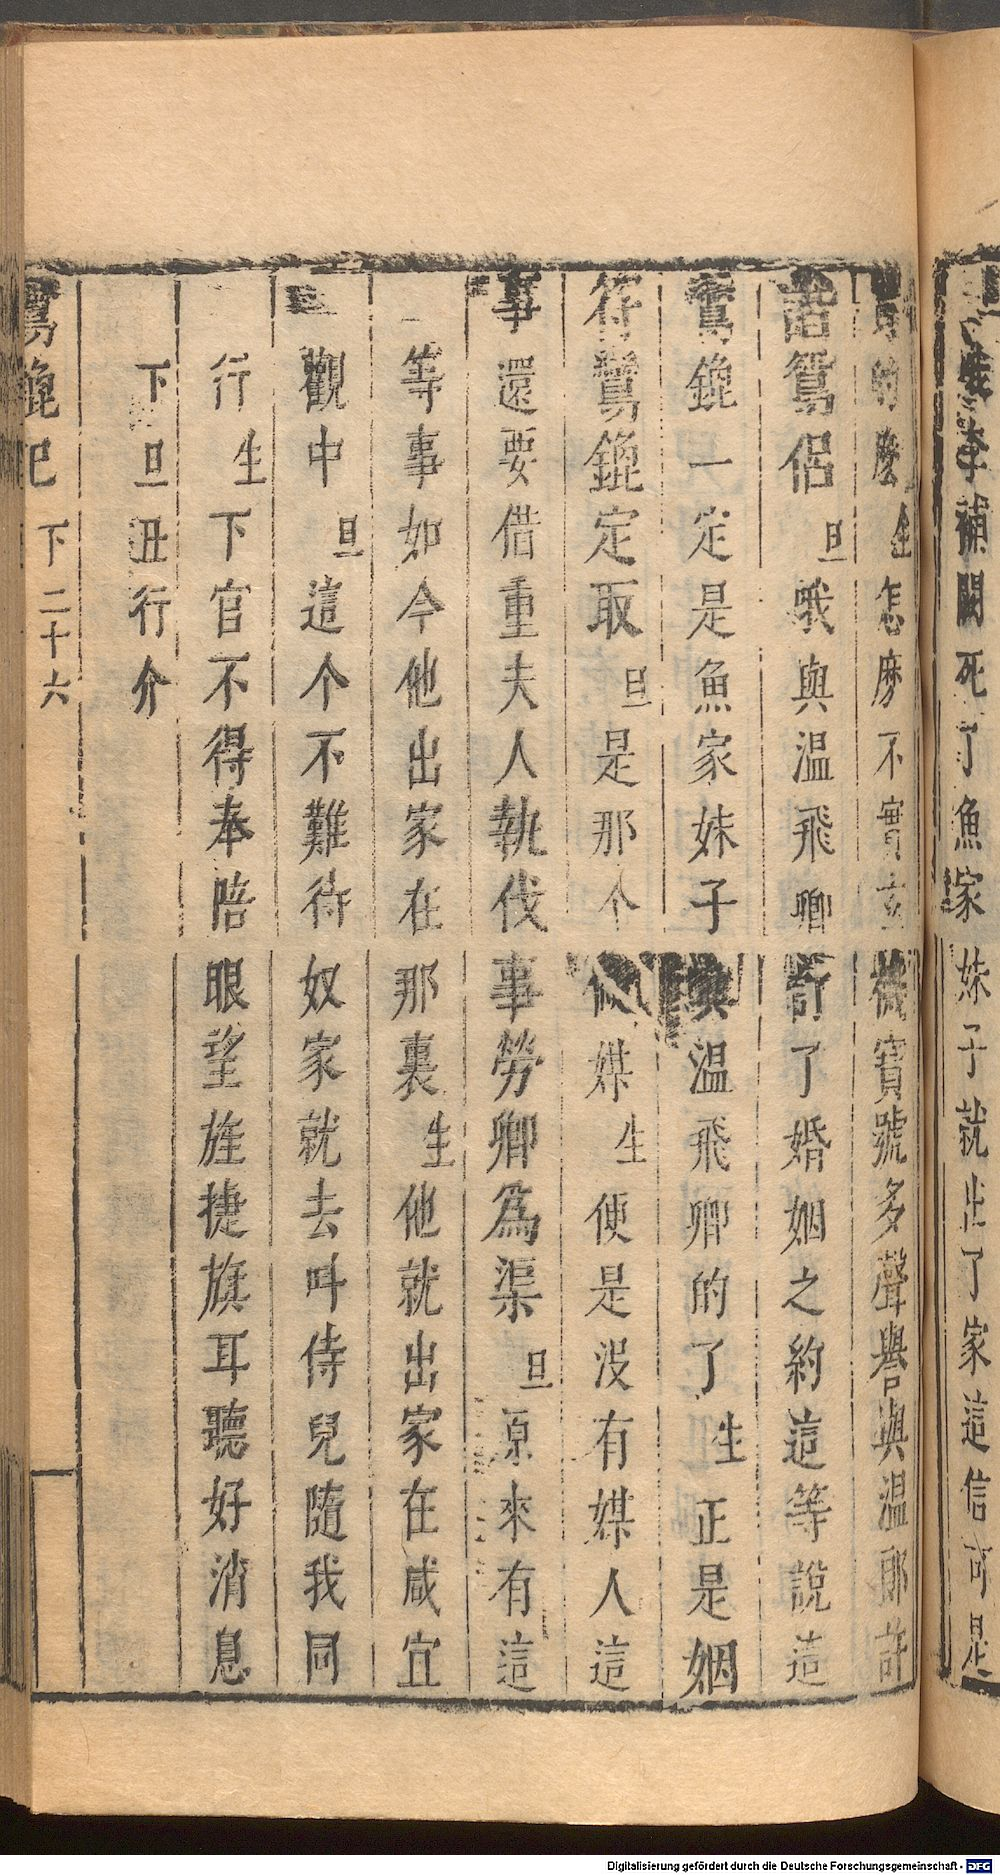 補闕死了魚家妹子就出了家這信可是
真的麼生怎麽不實玄機寶號多聲譽與溫郎許
諧鴛侶旦哦與温飛卿許了婚姻之約這等說這
鴛鎞一定是魚家妹子與温飛卿的了生正是姻
符鸞鎞定取旦是那个做媒生便是沒有媒人這
事還要借重夫人執伐事勞卿爲渠旦原來有這
等事如今他出家在那裏生他就出家在咸宜
觀中旦這个不難待奴家就去叫侍兒隨我同
行生下官不得奉陪眼望旌捷旗耳聽好消息
下旦丑行介
鸞鎞記 下 二十六
Digitalisierung gefördert durch die Deutsche Forschungsgemeinschaft - DFG